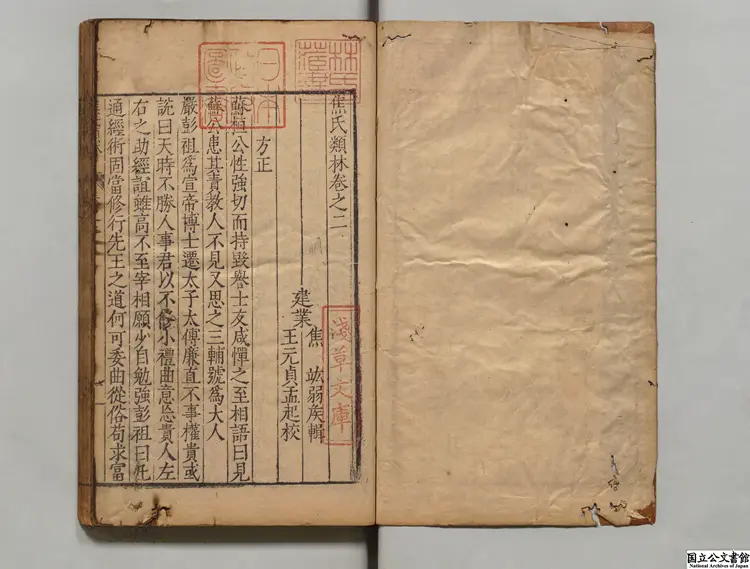 林氏藏書
日本政府圖書
焦氏類林卷之二
淺草文庫
建業
焦竑弱侯輯
王元貞孟起校
方正
蘇桓公性強切而持毀譽士友咸憚之至相語曰見
蘇公患其責教人不見又思之三輔號爲大人
嚴彭祖爲宣帝博士遷太子太傅廉直不事權貴或
說曰天時不勝人事君以不修小禮曲意貴人左
右之助經誼雖高不至宰相願少自勉強彭祖曰凡
通經術固當修行先王之道何可委曲從俗苟求富
国立公文書館
National Archives of Japan